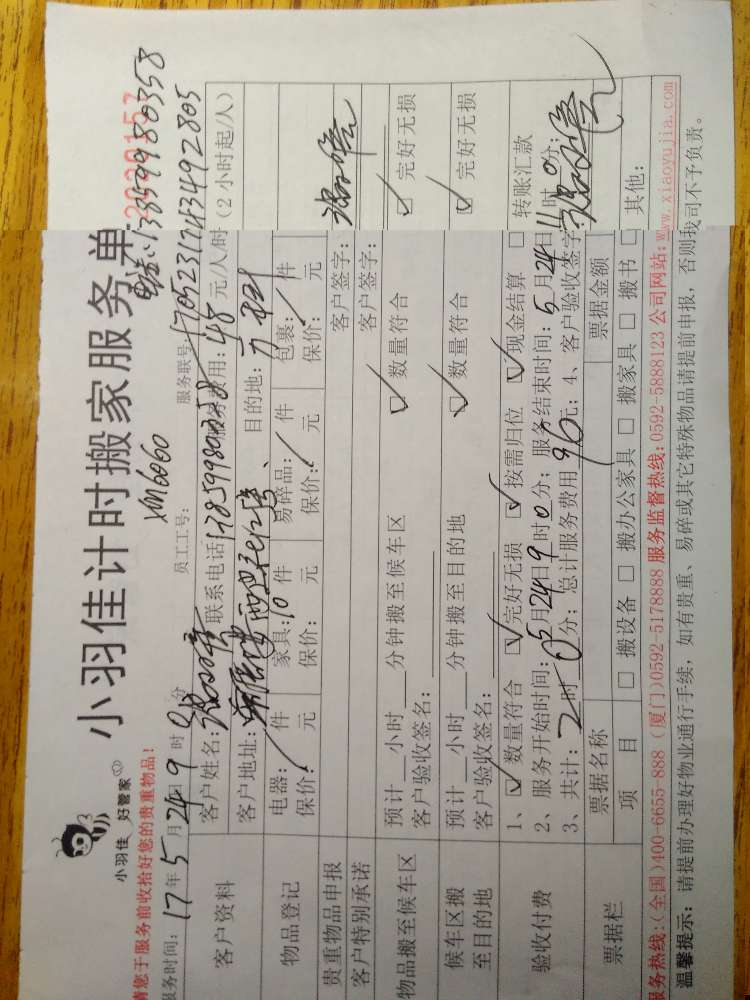 小羽佳 好管家
小羽佳计时搬家服务单
电话:13859980358
请您于服务前收拾好您的贵重物品!
服务时间: 17 年 5 月 24日 9 时 0 分 员工工号: XM6060 服务联号: 1705231243492805
客户资料
客户姓名: 联系电话: 服务费用: 48 元/人/时(2小时起/人)
客户地址: 目的地:
物品登记
电器: / 件 家具: 10 件 易碎品: / 件 包裹: / 件
保价: 元 保价: 元 保价: 元 保价: 元
贵重物品申报 客户签字:
客户特别承诺 客户签字:
物品搬至候车区
预计___小时___分钟搬至候车区 ☑ 数量符合 ☑ 完好无损
客户验收签名:
候车区搬至目的地
预计___小时___分钟搬至目的地 ☑ 数量符合 ☑ 完好无损
客户验收签名:
验收付费
1、☑ 数量符合 ☑ 完好无损 ☑ 按需归位 ☑ 现金结算 □ 转账汇款
2、服务开始时间: 5月24日9时0分;服务结束时间: 5月24日11时0分;
3、共计: 2时0分;总计服务费用 96 元;4、客户验收签字
票据栏
票据名称 票据金额
项 目 □ 搬设备 □ 搬办公家具 □ 搬家具 □ 搬书 □ 其他:
服务热线:(全国)400-6655-888 (厦门)0592-5178888 服务监督热线:0592-5888123 公司网站:www.xiaoyujia.com
温馨提示: 请提前办理好物业通行手续,如有贵重、易碎或其它特殊物品请提前申报,否则我司不予负责。